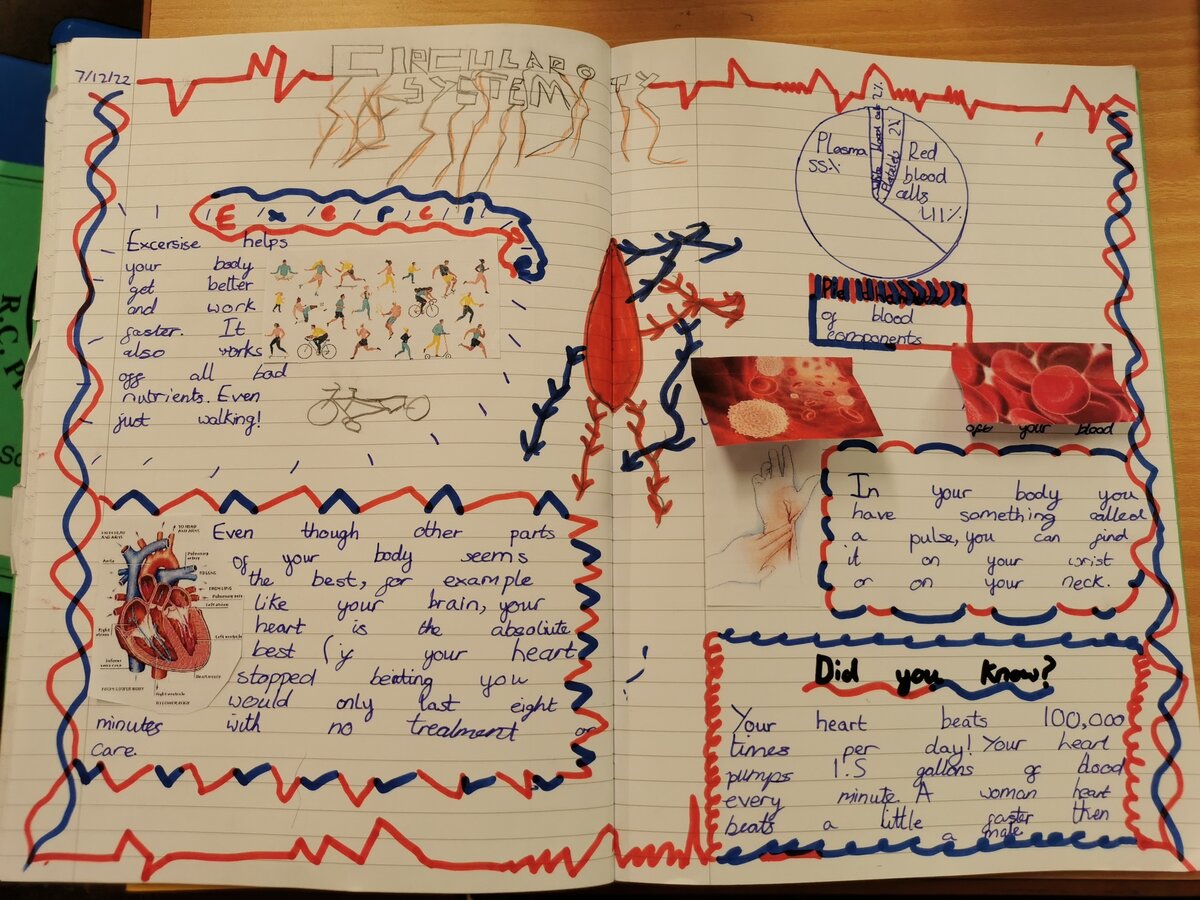 7/12/22
CIRCULAROTY
SYSTEM
Exercise
Excersise helps
your body
get better
and work
faster. It
also works
off all bad
nutrients. Even
just walking!
Even though other parts
of your body seems
the best, for example
like your brain, your
heart is the absoliute
best (if your heart
stopped beating you
would only last eight
minutes with no treatment or
care.
TO HEAD AND ARMS
Aorta
Pulmonary artery
Left atrium
Left ventricle
Right atrium
Right ventricle
Plasma
55%
White blood cells 2%
Platelets 2%
Red
blood
cells
41%
of blood
components
off your blood
In your body you
have something called
a pulse, you can find
it on your wrist
or on your neck.
Did you know?
Your heart beats 100,000
times per day! Your heart
pumps 1.5 gallons of blood
every minute. A woman heart
beats a little faster then
a male
R.C. Pr